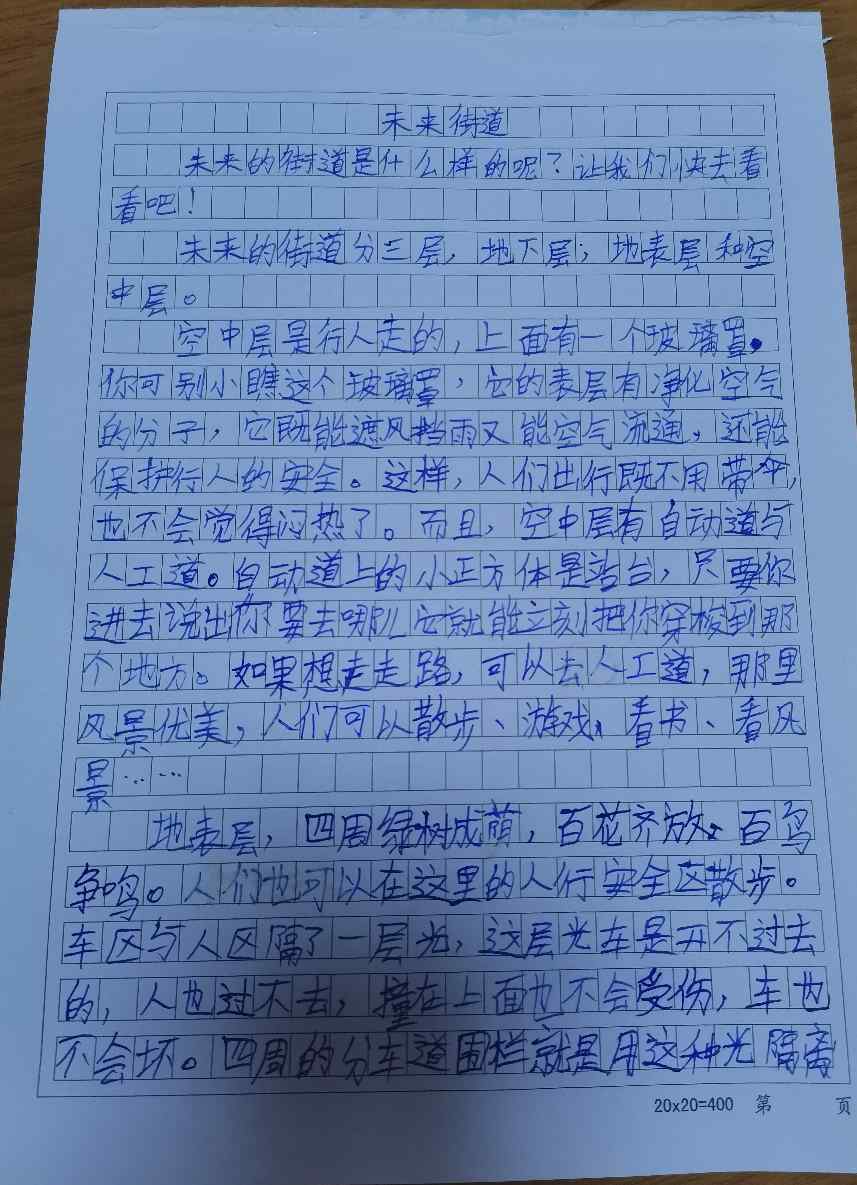 未来街道
未来的街道是什么样的呢？让我们快去看
看吧！
未来的街道分三层，地下层；地表层和空
中层。
空中层是行人走的，上面有一个玻璃罩。
你可别小瞧这个玻璃罩，它的表层有净化空气
的分子，它既能遮风挡雨又能空气流通，还能
保护行人的安全。这样，人们出行既不用带伞，
也不会觉得闷热了。而且，空中层有自动道与
人工道。自动道上的小正方体是站台，只要你
进去说出你要去哪儿它就能立刻把你穿梭到那
个地方。如果想走走路，可以去人工道，那里
风景优美，人们可以散步、游戏、看书、看风
景……
地表层，四周绿树成荫，百花齐放、百鸟
争鸣。人们也可以在这里的人行安全区散步。
车区与人区隔了一层光，这层光车是开不过去
的，人也过不去，撞在上面也不会受伤，车也
不会坏。四周的分车道围栏就是用这种光隔离
20x20=400 第 页